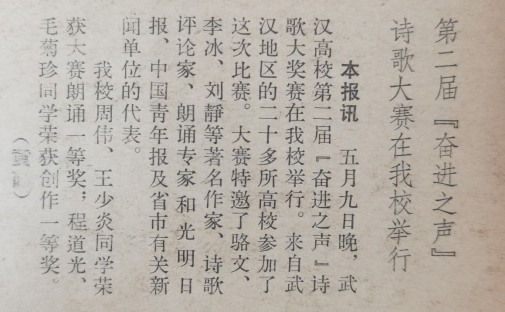 第二届『奋进之声』
诗歌大赛在我校举行
本报讯 五月九日晚，武
汉高校第二届『奋进之声』诗
歌大奖赛在我校举行。来自武
汉地区的二十多所高校参加了
这次比赛。大赛特邀了骆文、
李冰、刘静等著名作家、诗歌
评论家、朗诵专家和光明日
报、中国青年报及省市有关新
闻单位的代表。
我校周伟、王少炎同学荣
获大赛朗诵一等奖；程道光、
毛菊珍同学荣获创作一等奖。